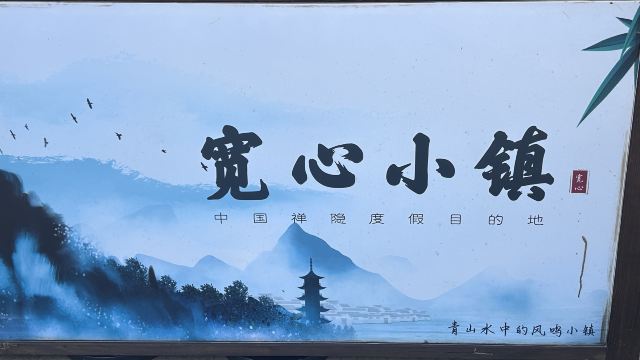 宽心小镇
宽心
中国禅隐度假目的地
青山水中的风鸣小镇